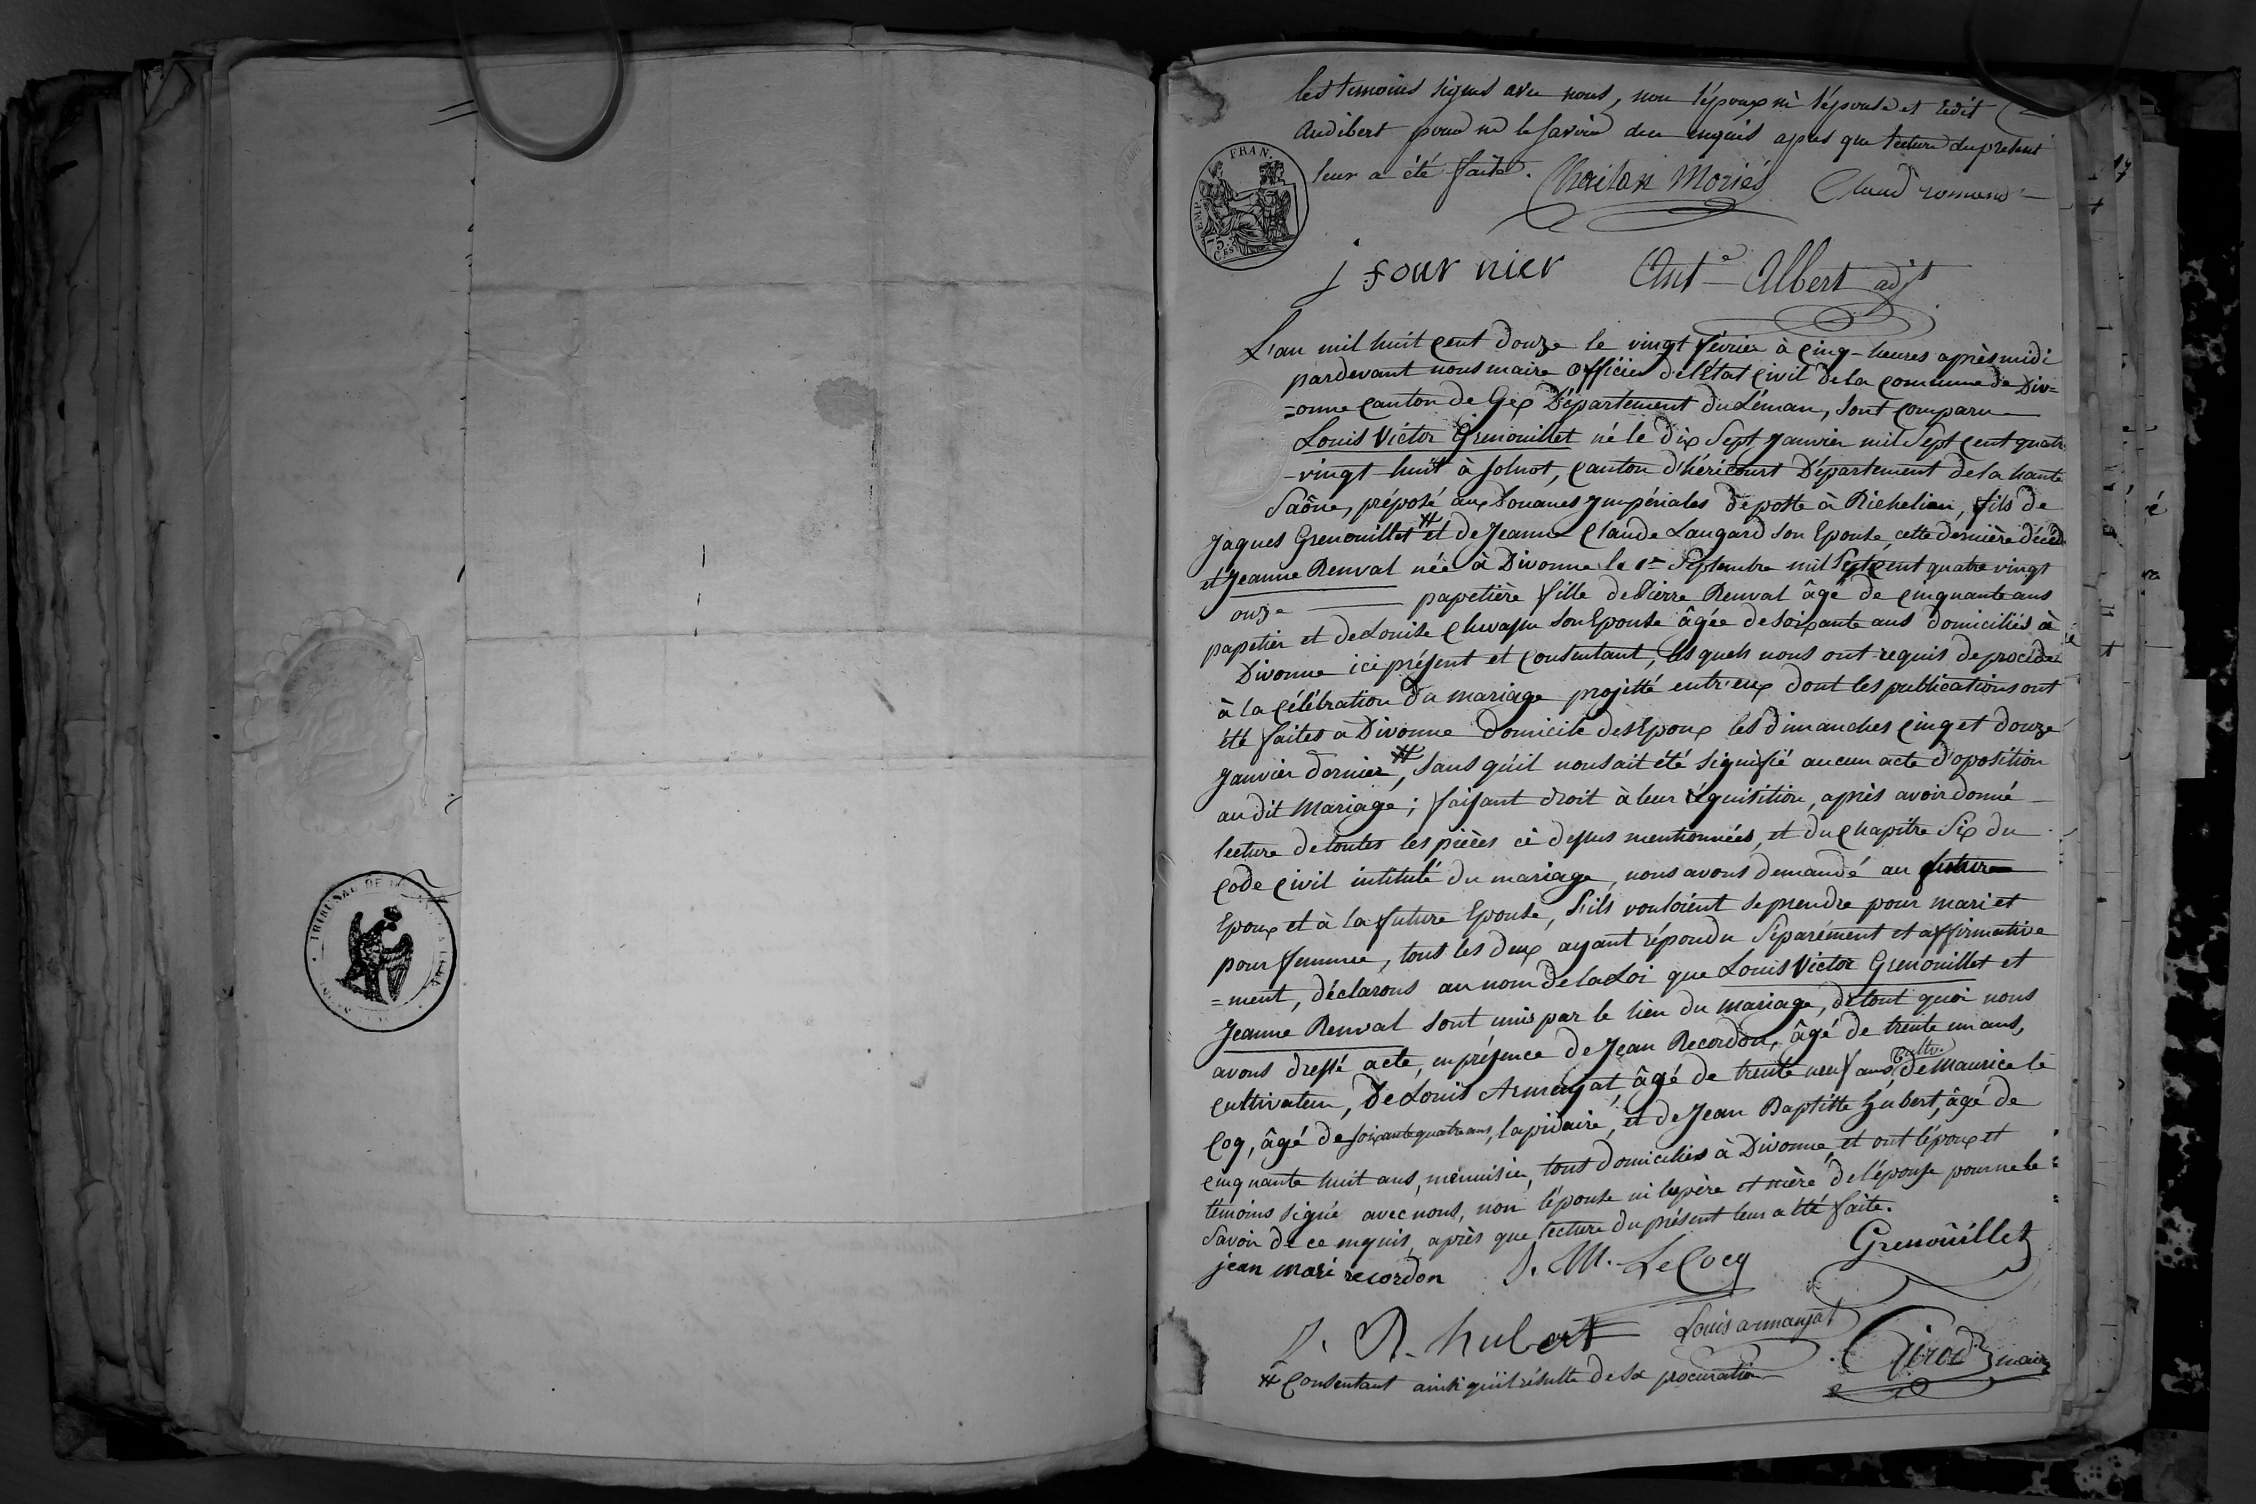 les temoins signés avec nous, non l'époux ni l'épouse et ledit
audibert pour ne le savoir de ce enquis apres que lecture du present
leur a été faite. Chailan Moriés Claud romand
FRAN.
EMP.
75
CES
j fournier Ant.e Albert adj.t
L'an mil huit cent douze le vingt février à cinq heures après midi
pardevant nous maire officier de l'État civil de la commune de Div=
=onne canton de Gex Département du Léman, sont comparu
Louis Victor Grenouillet né le dix sept janvier mil sept cent quatre
-vingt huit à , canton d'héricourt Département de la haute
Saône, préposé aux Douanes ympériales de poste à Richelieu, fils de
Jaques Grenouillet # et de Jeanne Claude Laugard son Epouse, cette dernière décéd
et Jeanne Renval née à Divonne le 1er Septembre mil Sept cent quatre vingt
onze papetière fille de Pierre Renval âgé de cinquante ans
papetier et de Louise son Epouse âgée de soixante ans domiciliés à
Divonne ici présent et consentant, lesquels nous ont requis de procéder
à la célébration du mariage projetté entr'eux dont les publications ont
été faites a Divonne domicile des Epoux les dimanches cinq et douze
janvier dernier #, sans qu'il nous ait été signifié aucun acte d'oposition
au dit mariage; faisant droit à leur réquisition, après avoir donné
lecture de toutes les pièces ci dessus mentionnées, et du chapitre Six du
code civil intitulé du mariage, nous avons demandé au futur
Epoux et à la future Epouse, s'ils vouloient se prendre pour mari et
pour femme, tous les deux ayant répondu séparément et affirmative
=ment, déclarons au nom de la Loi que Louis Victor Grenouillet et
Jeanne Renval sont unis par le lien du mariage, de tout quoi nous
avons dressé acte, en présence de Jean Recordon, âgé de trente un ans,
cultivateur, de Louis Armanjat, âgé de trente neuf ans, cultiv. de Maurice le
Coq, âgé de soixante quatre ans, lapidaire, et de Jean Baptiste hubert, âgé de
cinquante huit ans, menuisier, tous domiciliés à Divonne, et ont l'époux et
témoins signé avec nous, non l'épouse ni le père et mère de l'épouse pour ne le
savoir de ce enquis, après que lecture du présent leur a été faite.
jean mari recordon J. M. Le Cocq Grenouillet
J. B. hubert Louis armanjat Girod maire
# consentant ainsi qu'il résulte de sa procuration
TRIBUNAL DE